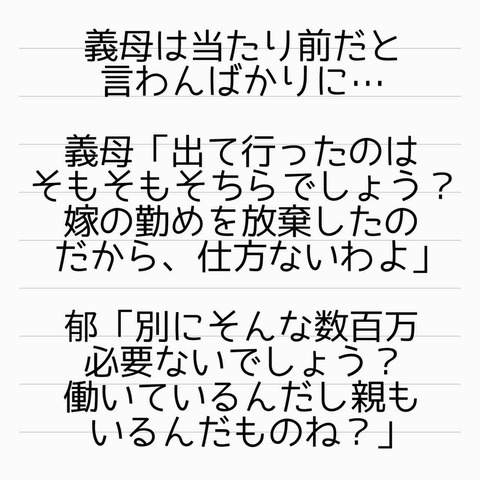 義母は当たり前だと
言わんばかりに…
義母「出て行ったのは
そもそもそちらでしょう？
嫁の勤めを放棄したの
だから、仕方ないわよ」
郁「別にそんな数百万
必要ないでしょう？
働いているんだし親も
いるんだものね？」